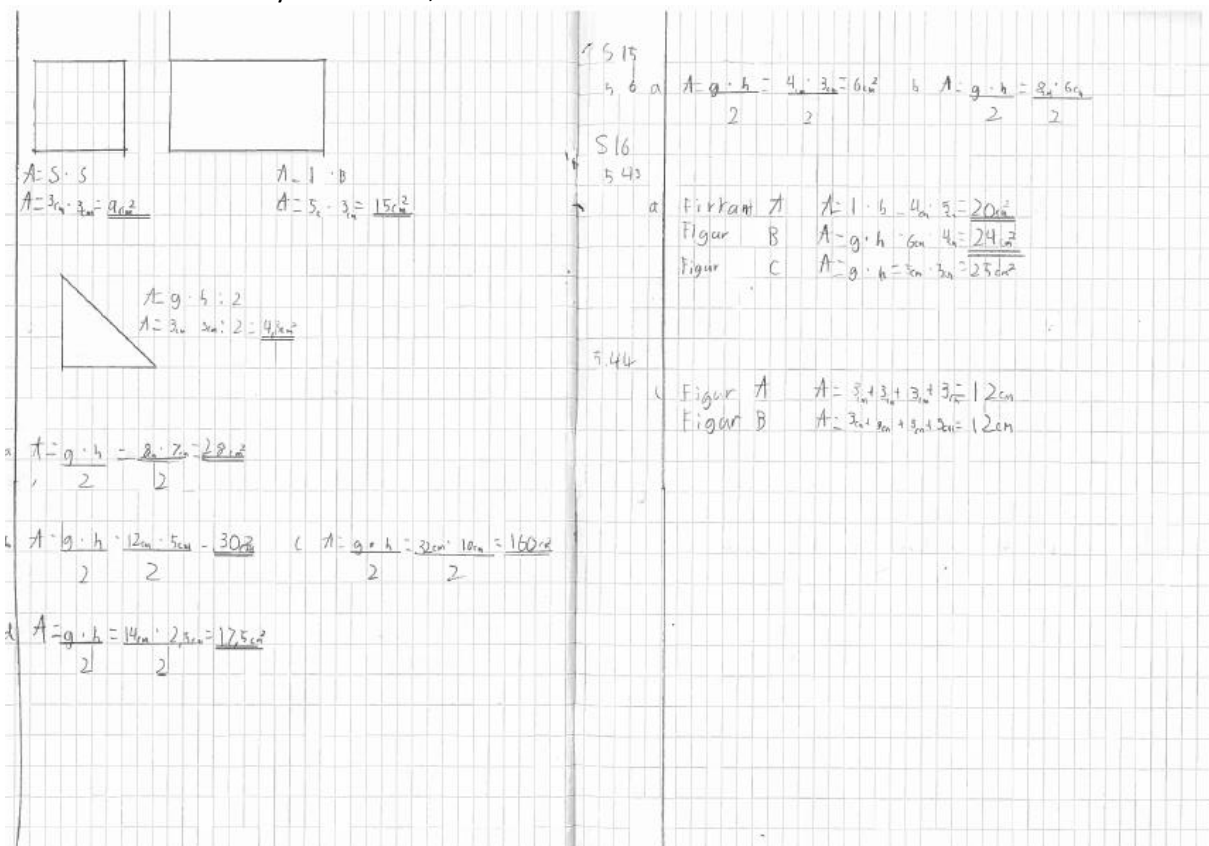 A=S·S
A=3cm·3cm=9cm²
A=l·B
A=5c·3cm=15cm²
A=g·h:2
A=3cm 3cm:2=4,5cm²
a A=g·h/2=8m·7cm/2=28cm²
A=g·h/2 12cm·5cm/2=30cm²
c A=g·h/2=32cm·10cm/2=160cm²
d A=g·h/2=14cm·2,5cm/2=17,5cm²
S 15
5, 6 a A=g·h/2=4cm·3cm/2=6cm² b A=g·h/2=8m·6cm/2
S 16
5 43
a Firkant A A=l·b=4cm·5c=20cm²
Figur B A=g·h=6cm·4cm=24cm²
Figur C A=g·h=5cm·5cm=25cm²
5.44
c Figur A A=3cm+3cm+3cm+3cm=12cm
Figur B A=3cm+3cm+3cm+3cm=12cm